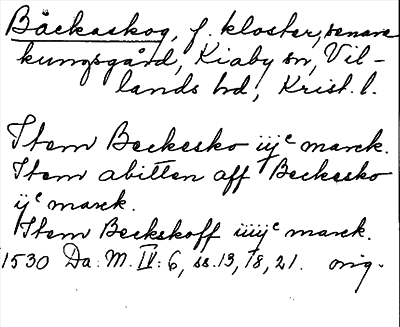 Bäckaskog, f. kloster, senare
kungsgård, Kiaby sn, Vil-
lands hd, Krist. l.
Item Beckesko iijᶜ marck.
Item abitten aff Beckesko
ijᶜ marck.
Item Beckskoff iiijᶜ marck.
1530 Da: M. IV: 6, ss. 13, 18, 21. orig.